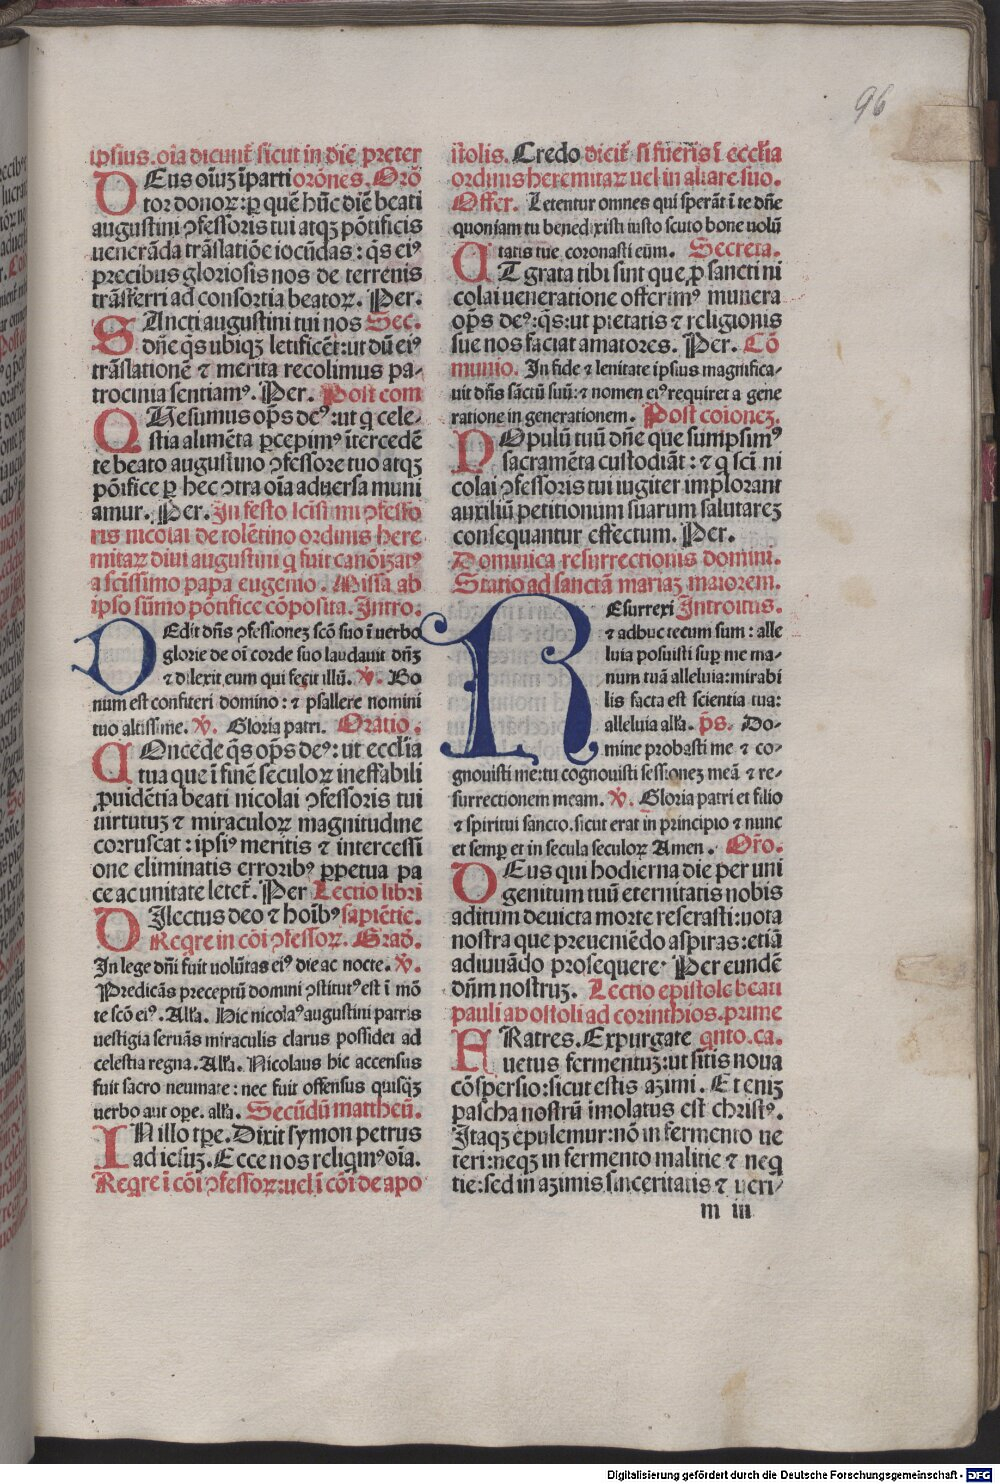 96
ipsius. oīa dicunt̄ sicut in die preter
DEus oīuꝫ īparti orōnes. Orō
tor donoꝝ: ꝑ quē hūc diē beati
augustini ꝯfessoris tui atqꝫ pōtificis
uenerāda trāslatiōe iocūdas: q̄s eiꝰ
precibus gloriosis nos de terrenis
trāsferri ad consortia beatoꝝ. Per.
SAncti augustini tui nos Sec.
dn̄e q̄s ubiqꝫ letificēt: ut dū eiꝰ
trāslationē ⁊ merita recolimus pa-
trocinia sentiamꝰ. Per. Post com
QUesumus op̄s deꝰ: ut q cele-
stia alimēta ꝑcepimꝰ itercedē
te beato augustino ꝯfessore tuo atqꝫ
pōtifice ꝑ hec ꝯtra oīa aduersa muni
amur. Per. In festo scīssimi ꝯfesso
ris nicolai de tolētino ordinis here
mitaꝝ diui augustini q fuit canōizatꝰ
a scīssimo papa eugenio. Missa ab
ipso sūmo pōtifice cōposita. Intro:
DEdit dn̄s ꝯfessionez scō suo ī uerbo
glorie de oī corde suo laudauit dn̄ꝫ
⁊ dilexit eum qui fecit illū. ℣. Bo
num est confiteri domino: ⁊ psallere nomini
tuo altissime. ℣. Gloria patri. Oratio.
COncede q̄s op̄s deꝰ: ut eccl̄ia
tua que ī finē seculoꝝ ineffabili
ꝓuidētia beati nicolai ꝯfessoris tui
uirtutuꝫ ⁊ miraculoꝝ magnitudine
corruscat: ipsiꝰ meritis ⁊ intercessi
one eliminatis erroribꝰ ꝑpetua pa
ce ac unitate letet̄. Per Lectio libri
DIlectus deo ⁊ hoībꝰ sapiētie.
Reqre in cōi ꝯfessoꝝ. Grad.
In lege dn̄i fuit volūtas eiꝰ die ac nocte. ℣.
Predicās preceptū domini ꝯstitutꝰ est ī mō
te scō eiꝰ. All̄a. Hic nicolaꝰ augustini patris
uestigia seruās miraculis clarus possidet ad
celestia regna. All̄a. Nicolaus hic accensus
fuit sacro neumate: nec fuit offensus quisqꝫ
uerbo aut oꝑe. all̄a. Secūdū mattheū.
IN illo tp̄e. Dixit symon petrus
ad iesuꝫ. Ecce nos reliqmꝰ oīa.
Reqre ī cōi ꝯfessoꝝ: uel ī cōi de apo
stolis. Credo dicit̄ si fueris ī eccl̄ia
ordinis heremitaꝝ uel in altare suo.
Offer. Letentur omnes qui sperāt ī te dn̄e
quoniam tu benedixisti iusto scuto bone uolū
tatis tue coronasti eūm. Secreta.
UT grata tibi sint que ꝓ sancti ni
colai ueneratione offerimꝰ munera
op̄s deꝰ: q̄s: ut pietatis ⁊ religionis
sue nos faciat amatores. Per. Cō
munio. In fide ⁊ lenitate ipsius magnifica-
uit dn̄s sāctū suū: ⁊ nomen eiꝰ requiret a gene
ratione in generationem. Post coionez.
POpulū tuū dn̄e que sumpsimꝰ
sacramēta custodiāt: ⁊ q scī ni
colai ꝯfessoris tui iugiter implorant
auxiliū petitionum suarum salutarez
consequantur effectum. Per.
Dominica resurrectionis domini.
Statio ad sanctā mariaꝫ maiorem.
REsurrexi Introitus.
⁊ adhuc tecum sum: alle
luia posuisti suꝑ me ma-
num tuā alleluia: mirabi
lis facta est scientia tua:
alleluia all̄a. p̄s. Do-
mine probasti me ⁊ co-
gnouisti me: tu cognouisti sessionez meā ⁊ re-
surrectionem meam. ℣. Gloria patri et filio
⁊ spiritui sancto. sicut erat in principio ⁊ nunc
et semꝑ et in secula seculoꝝ Amen. Or̄o.
DEus qui hodierna die per uni
genitum tuū eternitatis nobis
aditum deuicta morte reserasti: uota
nostra que preueniēdo aspiras: etiā
adiuuādo prosequere. Per eundē
dn̄m nostruꝫ. Lectio epistole beati
pauli apostoli ad corinthios. prime
FRatres. Expurgate qnto. ca.
uetus fermentuꝫ: ut sitis noua
cōspersio: sicut estis azimi. Et eniꝫ
pascha nostrū imolatus est christꝰ.
Itaqꝫ epulemur: nō in fermento ue
teri: neqꝫ in fermento malitie ⁊ neq
tie: sed in azimis sinceritatis ⁊ ueri-
m iii
Digitalisierung gefördert durch die Deutsche Forschungsgemeinschaft - DFG